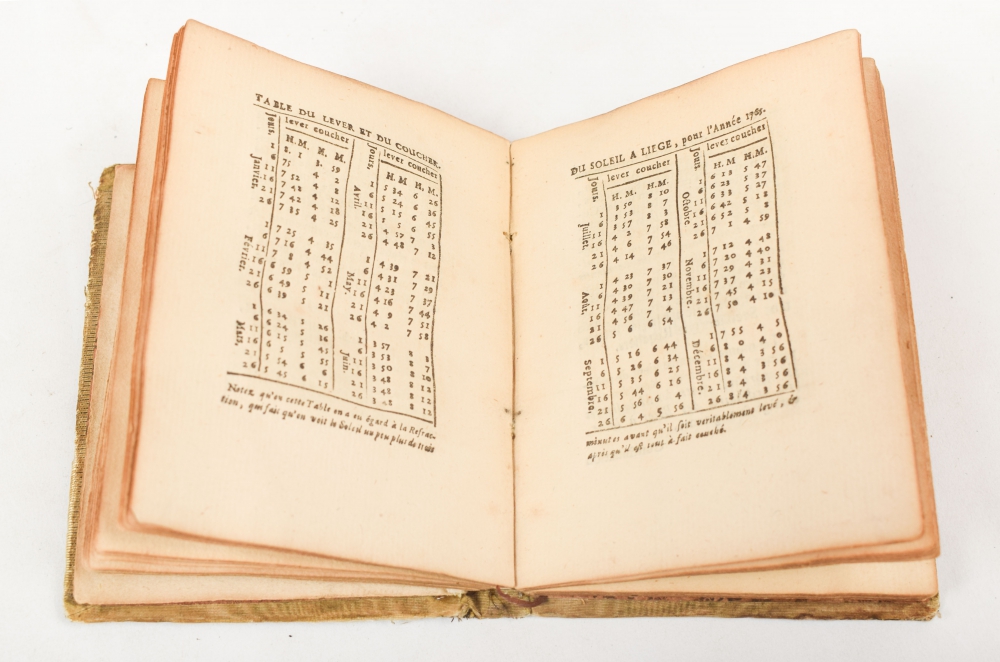 TABLE DU LEVER ET DU COUCHER.
Jours. lever coucher
H. M. H. M.
Janvier.
1 8. 1 3. 59
6 75
11 7 52 4 8
16 7 48 4 12
21 7 42 4 18
26 7 35 4 25
Fevrier.
1 7 25 4 35
6 7 16 4 44
11 7 8 4 52
16 6 59 5 1
21 6 49 5 11
26 6 39 5 21
Mars.
1 6 34 5 26
6 6 24 5 36
11 6 15 5 45
16 6 5 5 55
21 5 54 6 6
26 5 45 6 15
Jours. lever coucher
H. M H. M.
Avril.
1 5 34 6 26
6 5 24 6 36
11 5 15 6 45
16 5 5 6 55
21 4 57 7 3
26 4 48 7 12
May.
1 4 39 7 21
6 4 31 7 29
11 4 23 7 37
16 4 16 7 44
21 4 9 7 51
26 4 2 7 58
Juin.
1 3 57 8 3
6 3 53 8 7
11 3 50 8 10
16 3 48 8 12
21 3 48 8 12
26 3 48 8 12
Notez qu'en cette Table on a eu égard à la Refrac-
tion, qui fait qu'on voit le Soleil un peu plus de trois
DU SOLEIL A LIEGE, pour l'Année 1765.
Jours. lever coucher
H. M. H. M.
Juillet.
1 3 50 8 10
6 3 53 8 7
11 3 57 8 3
16 4 2 7 58
21 4 6 7 54
26 4 14 7 46
Aout.
1 4 23 7 37
6 4 30 7 30
11 4 39 7 21
16 4 47 7 13
21 4 56 7 4
26 5 6 6 54
Septembre.
1 5 16 6 44
6 5 26 6 34
11 5 35 6 25
16 5 44 6 16
21 5 56 6 4
26 6 4 5 56
Jours. lever coucher
H. M H. M.
Octobre.
1 6 13 5 47
6 6 23 5 37
11 6 33 5 27
16 6 42 5 18
21 6 52 5 8
26 7 1 4 59
Novembre.
1 7 12 4 48
6 7 20 4 40
11 7 29 4 31
16 7 37 4 23
21 7 45 4 15
26 7 50 4 10
Décembre.
1 7 55 4 5
6 8 0 4 0
11 8 4 3 56
16 8 4 3 56
21 8 4 3 56
26 8 4 3 56
minutes avant qu'il soit veritablement levé, &
après qu'il est tout à fait couché.